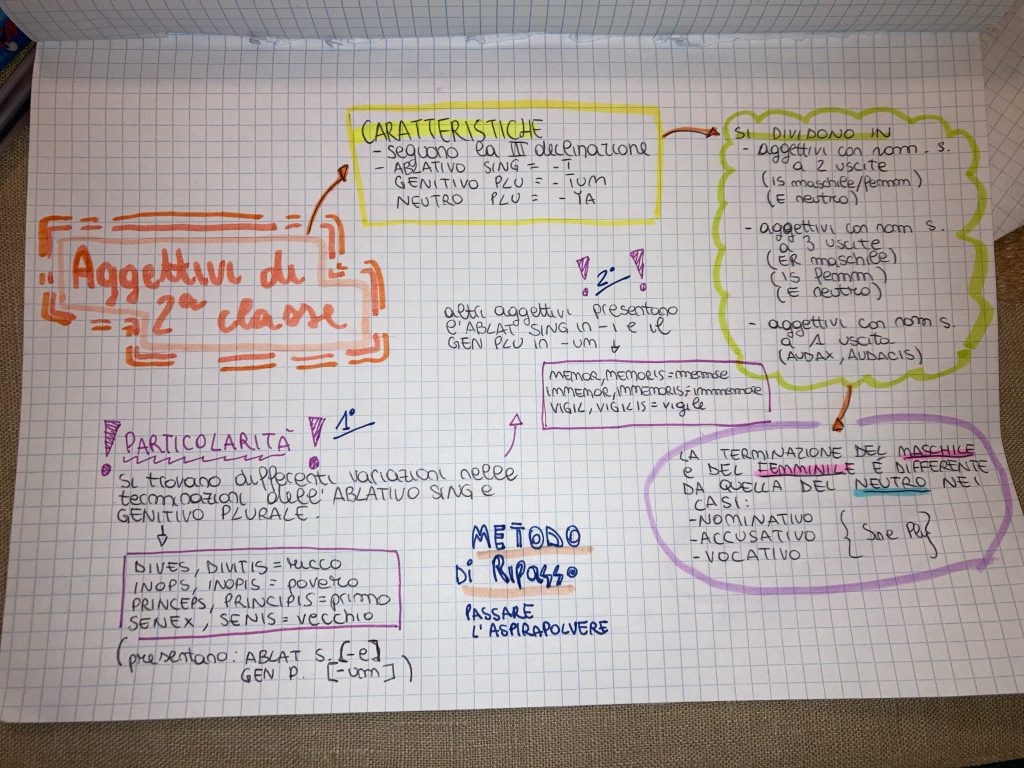 Aggettivi di
2ª classe
CARATTERISTICHE
- seguono la III declinazione
- ABLATIVO SING = -Ī
GENITIVO PLU = - ĬUM
NEUTRO PLU = - ĬA
SI DIVIDONO IN
- aggettivi con nom. s.
a 2 uscite
(IS maschile/femm)
(E neutro)
- aggettivi con nom s.
a 3 uscite
(ER maschile)
(IS femm)
(E neutro)
- aggettivi con nom s.
a 1 uscita
(AUDAX, AUDACIS)
LA TERMINAZIONE DEL MASCHILE
e DEL FEMMINILE È DIFFERENTE
DA QUELLA DEL NEUTRO NEI
CASI:
- NOMINATIVO
- ACCUSATIVO
- VOCATIVO
{ S ne Plu }
! PARTICOLARITÀ ! 1°
si trovano differenti variazioni nelle
terminazioni dell'ABLATIVO SING e
GENITIVO PLURALE.
DIVES, DIVITIS = ricco
INOPS, INOPIS = povero
PRINCEPS, PRINCIPIS = primo
SENEX, SENIS = vecchio
(presentano: ABLAT S. [-e]
GEN P. [-um])
! 2° !
altri aggettivi presentano
l'ABLAT SING in -i e il
GEN PLU in -um
MEMOR, MEMORIS = memore
IMMEMOR, IMMEMORIS = immemore
VIGIL, VIGILIS = vigile
METODO
Di Ripasso
PASSARE
L'ASPIRAPOLVERE